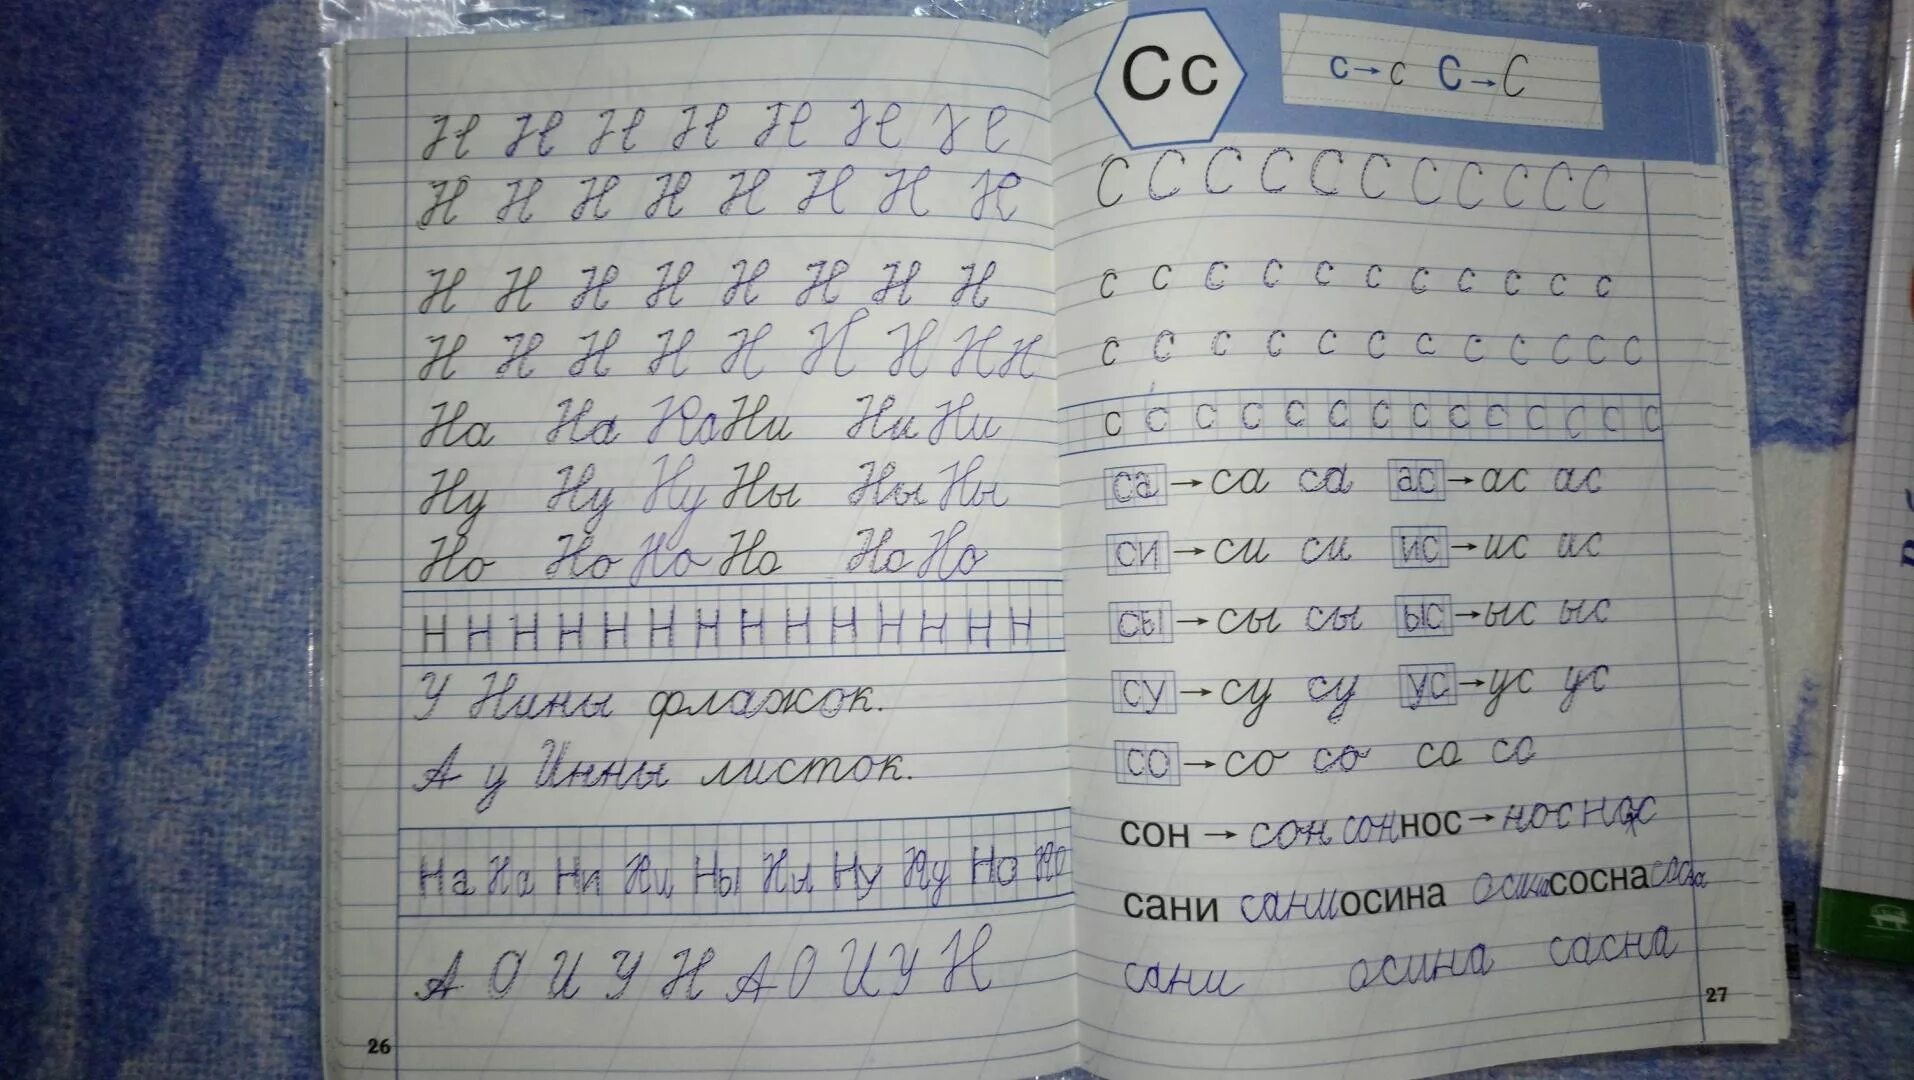 Н Н Н Н Н Н Н
Н Н Н Н Н Н Н Н
Н Н Н Н Н Н Н Н
Н Н Н Н Н Н Н Н н
На На На Ни Ни Ни
Ну Ну Ну Ны Ны Ны
Но Но Но Но Но Но
Н Н Н Н Н Н Н Н Н Н Н Н Н Н
У Нины флажок.
А у Инны листок.
На На Ни Ни Ны Ны Ну Ну Но Но
А О И У Н А О И У Н
26
Сс
с→с С→С
С С С С С С С С С С С
с с с с с с с с с с с
с с с с с с с с с с с с
с с с с с с с с с с с с с с
са → са са ас → ас ас
си → си си ис → ис ис
сы → сы сы ыс → ыс ыс
су → су су ус → ус ус
со → со со со со
сон → сон сон нос → нос нос
сани сани осина осина сосна сосна
сани осина сасна
27